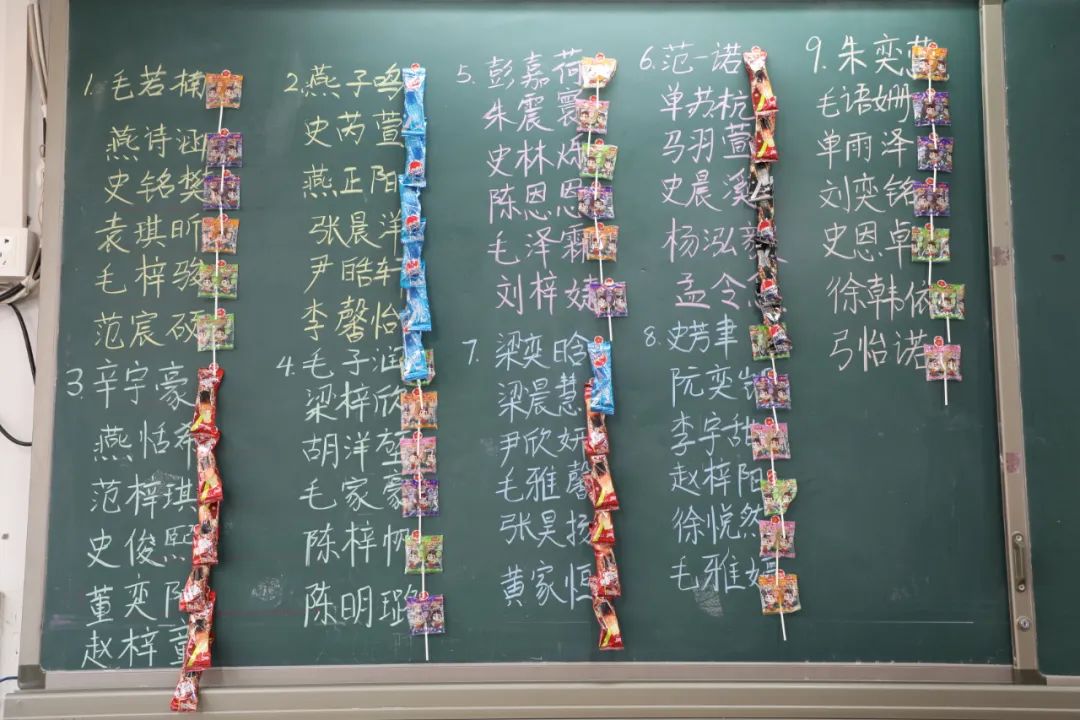 1. 毛若楠
燕诗涵
史铭
袁琪昕
毛梓骏
范宸硕
2. 燕子鸣
史芮萱
燕正阳
张晨洋
尹皓轩
李馨怡
3. 辛宇豪
燕恬希
范梓琪
史俊熙
董奕
赵梓童
4. 毛子涵
梁梓欣
胡洋
毛家豪
陈梓帆
陈明璐
5. 彭嘉荷
朱震寰
史林
陈恩恩
毛泽霖
刘梓婕
6. 范一诺
单苏杭
马羽萱
史晨溪
杨泓
孟令
7. 梁奕晗
梁晨慧
尹欣妍
毛雅馨
张昊扬
黄家恒
8. 史芳聿
阮奕
李宇甜
赵梓阳
徐悦然
毛雅婷
9. 朱奕
毛语姗
单雨泽
刘奕铭
史恩卓
徐韩依
弓怡诺